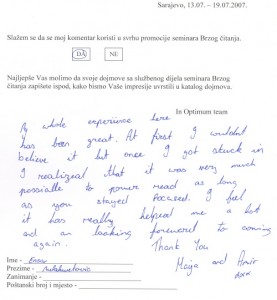 Sarajevo, 13.07. – 19.07.2007.
Slažem se da se moj komentar koristi u svrhu promocije seminara Brzog čitanja.
DA NE
Najljepše Vas molimo da svoje dojmove sa službenog dijela seminara Brzog
čitanja zapišete ispod, kako bismo Vaše impresije uvrstili u katalog dojmova.
In Optimum team
My whole experience here
has been great. At first I wouldnt
believe it but once I got stuck in
I realized that it was very much
possible to power read as long
as you stayed focused. I feel
it has really helped me a lot
and am looking foreword to coming
again.
Thank You
Maja and Amir
xxx
Ime -
Prezime -
Zanimanje -
Poštanski broj i mjesto -